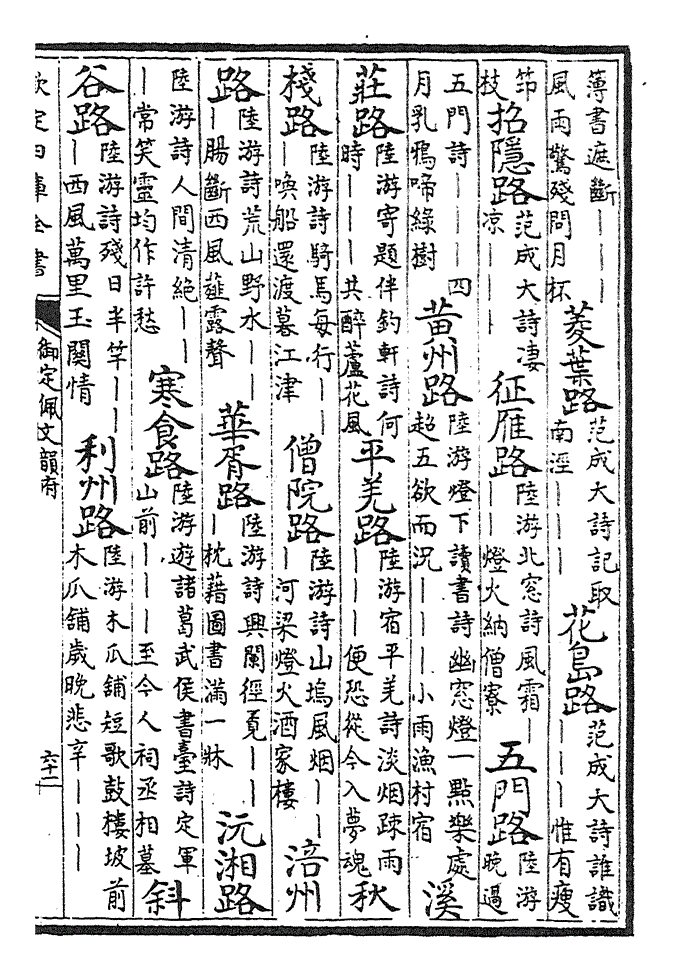 簿書遮斷｜｜｜風雨驚殘問月杯 菱葉路 范成大詩記取南涇｜｜｜ 花島路 范成大詩誰識｜｜｜惟有瘦
笻枝 招隱路 范成大詩淒凉｜｜｜ 征雁路 陸游北窓詩風霜｜｜｜燈火納僧寮 五門路 陸游晚過
五門詩｜｜｜四月乳鴉啼綠樹 黃州路 陸游燈下讀書詩幽窓燈一點樂處超五欲而況｜｜｜小雨漁村宿 溪
莊路 陸游寄題伴鈞軒詩何時｜｜｜共醉蘆花風 平羌路 陸游宿平羌詩淡烟踈雨｜｜｜便恐從今入夢魂 秋
棧路 陸游詩騎馬每行｜｜｜喚船還渡暮江津 僧院路 陸游詩山塢風烟｜｜｜河梁燈火酒家樓 涪州
路 陸游詩荒山野水｜｜｜腸斷西風薤露聲 華胥路 陸游詩興闌徑覓｜｜｜枕藉圖書滿一牀 沅湘路
陸游詩人間清絕｜｜｜常笑靈均作許愁 寒食路 陸游遊諸葛武侯書臺詩定軍山前｜｜｜至今人祠丞相墓 斜
谷路 陸游詩殘日半竿｜｜｜西風萬里玉關情 利州路 陸游木瓜舖短歌鼓樓坡前木瓜舖歲晚悲辛｜｜｜
欽定四庫全書 御定佩文韻府 六十二